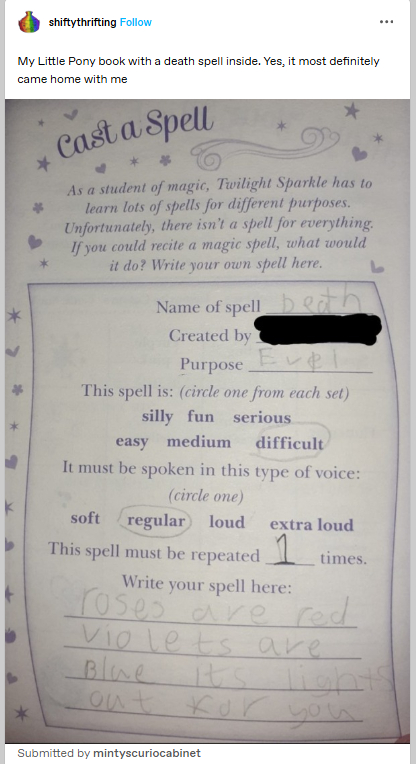 shiftythrifting Follow
My Little Pony book with a death spell inside. Yes, it most definitely
came home with me
Cast a Spell
As a student of magic, Twilight Sparkle has to
learn lots of spells for different purposes.
Unfortunately, there isn't a spell for everything.
If you could recite a magic spell, what would
it do? Write your own spell here.
Name of spell Death
Created by
Purpose Evel
This spell is: (circle one from each set)
silly fun serious
easy medium difficult
It must be spoken in this type of voice:
(circle one)
soft regular loud extra loud
This spell must be repeated 1 times.
Write your spell here:
roses are red
violets are
Blue its lights
out for you
Submitted by mintyscuriocabinet